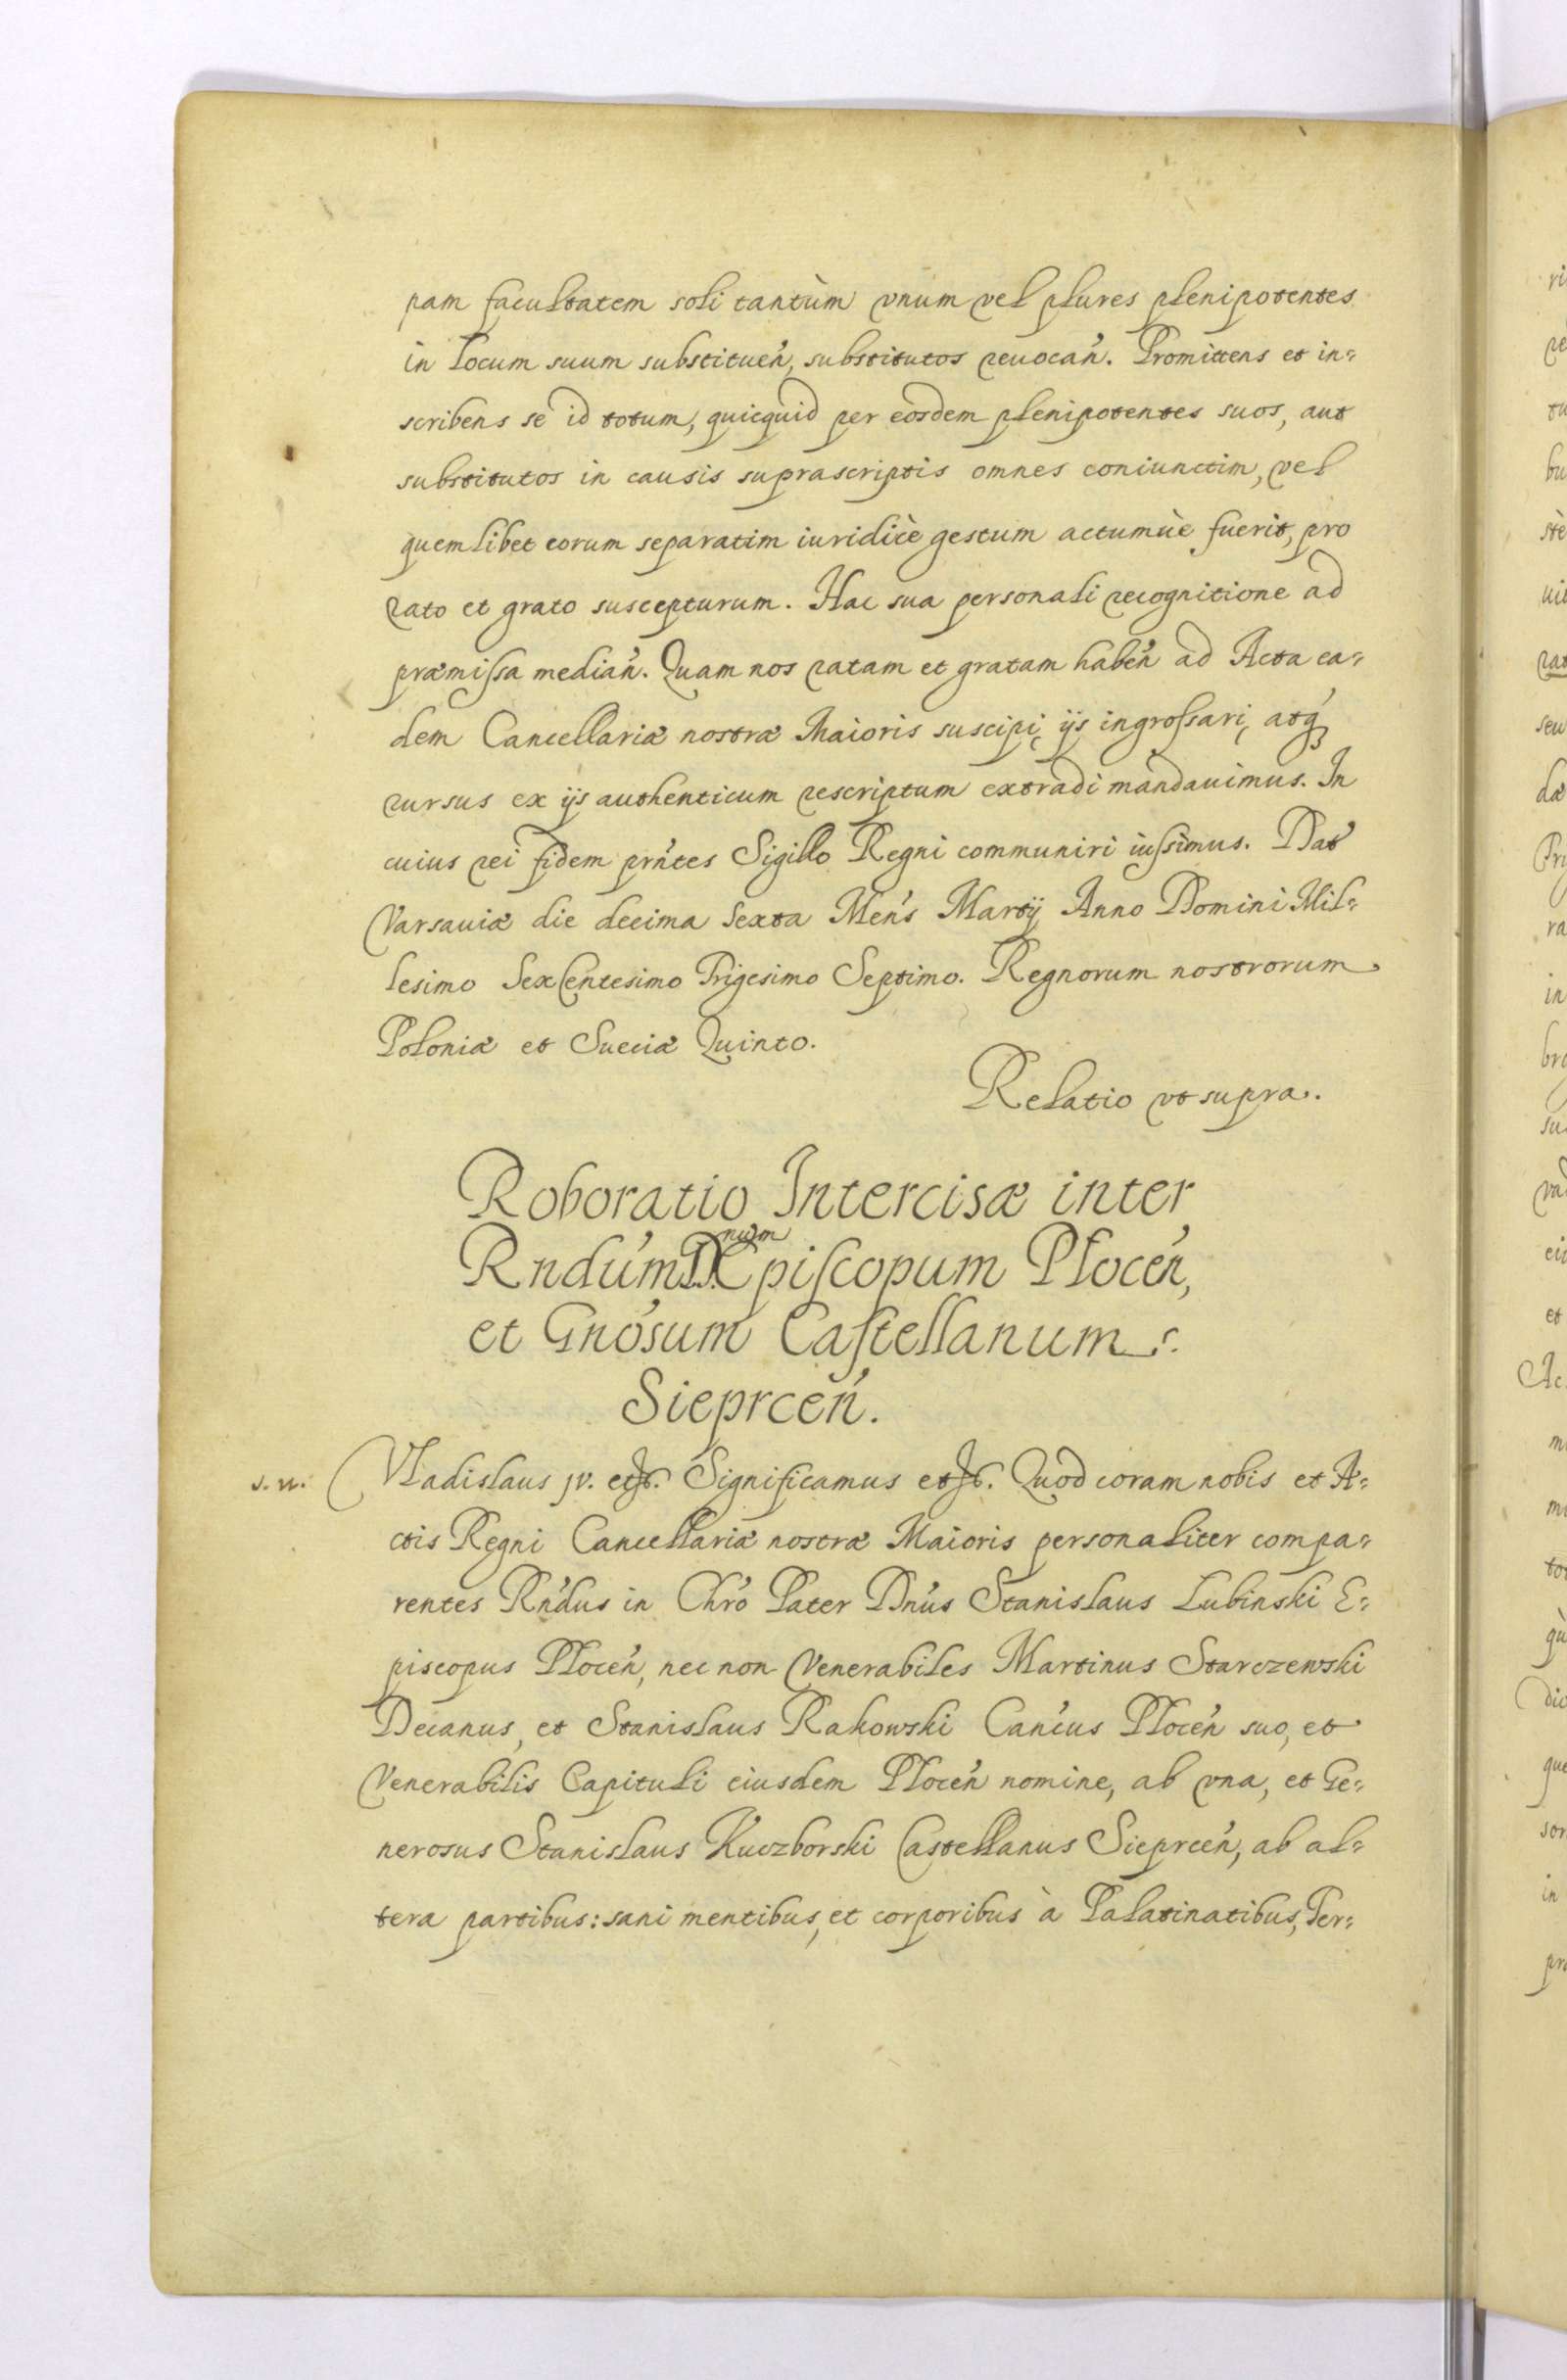 pam facultatem soli tantùm vnum vel plures plenipotentes
in locum suum substituen̄, substitutos reuocan̄. Promittens et in=
scribens se id totum, quicquid per eosdem plenipotentes suos, aut
substitutos in causis suprascriptis omnes coniunctim, vel
quemlibet eorum separatim iuridicè gestum actumuè fuerit, pro
rato et grato suscepturum. Hac sua personali recognitione ad
præmissa median̄. Quam nos ratam et gratam haben̄ ad Acta ea=
dem Cancellariæ nostræ Maioris suscipi, ijs ingrossari, atq́;
rursus ex ijs authenticum rescriptum extradi mandauimus. In
cuius rei fidem prńtes Sigillo Regni communiri iussimus. Dat
Varsauiæ die decima Sexta Meńs Martij Anno Domini Mil=
lesimo SexCentesimo Trigesimo Septimo. Regnorum nostrorum
Poloniæ et Sueciæ Quinto.
Relatio vt supra.
Roboratio Intercisæ inter
Rndúm D. Episcopum Plocen̄,
et Gnósum Castellanum
Sieprcen̄.
s. n. Vladislaus jv. etc. Significamus etc. Quod coram nobis et A=
ctis Regni Cancellariæ nostræ Maioris personaliter compa=
rentes Rńdus in Chró Pater Dnús Stanislaus Lubinski E=
piscopus Plocen̄, nec non Venerabiles Martinus Starczewski
Decanus, et Stanislaus Rakowski Canćus Plocen̄ suo, et
Venerabilis Capituli eiusdem Plocen̄ nomine, ab vna, et Ge=
nerosus Stanislaus Kuczborski Castellanus Sieprcen̄, ab al=
tera partibus: sani mentibus, et corporibus à Palatinatibus, Ter=